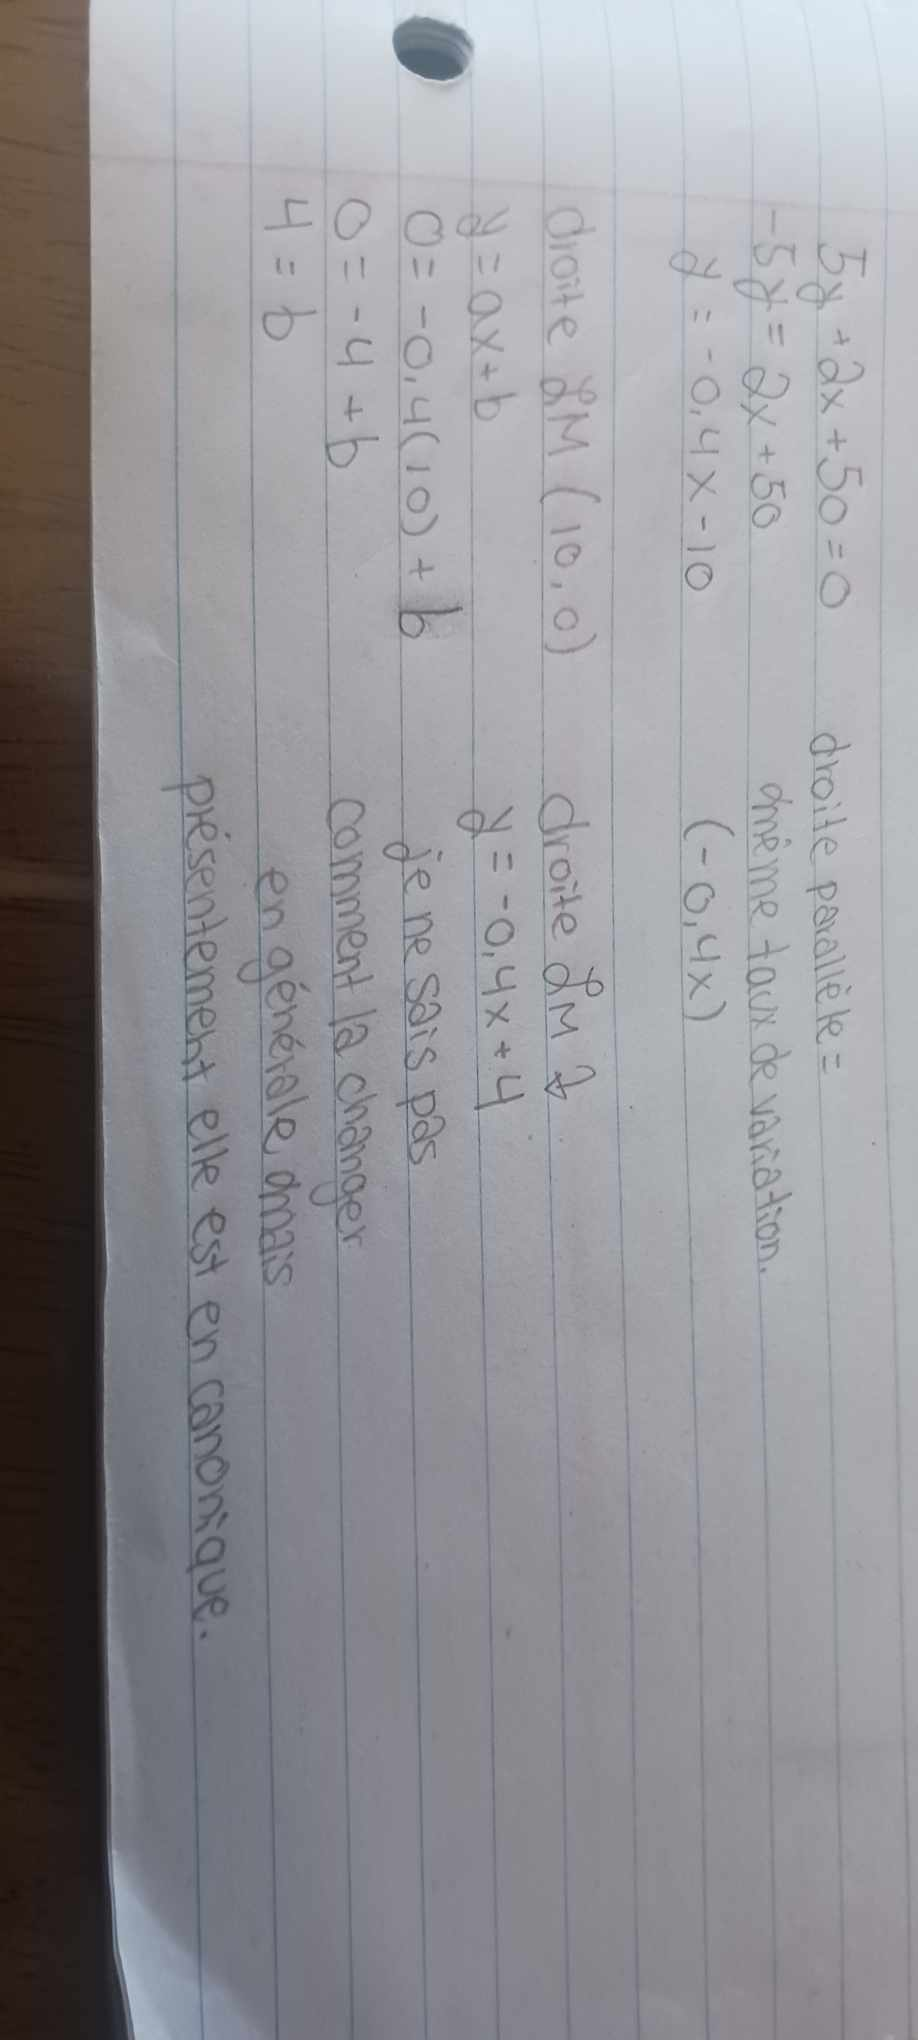 5y + 2x + 50 = 0 droite parallèle =
-5y = 2x + 50 même taux de variation.
y = -0,4x - 10 (-0,4x)
droite LM (10,0) droite LM
y = ax + b y = -0,4x + 4
0 = -0,4(10) + b je ne sais pas
0 = -4 + b comment la changer
4 = b en générale, mais
présentement elle est en canonique.